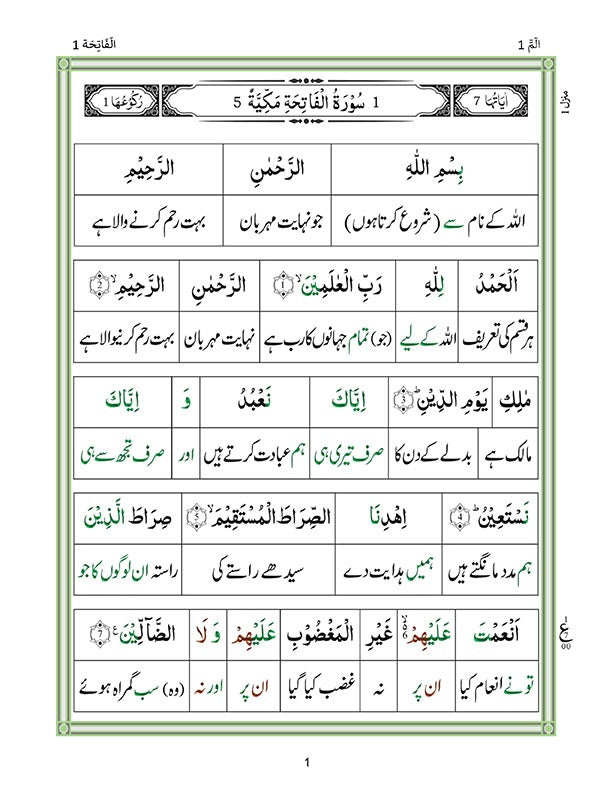 الٓمّٓ 1 الْفَاتِحَة 1
اٰيَاتُهَا 7 1 سُوْرَةُ الْفَاتِحَةِ مَكِّيَّةٌ 5 رُكُوْعُهَا 1
منزل 1
بِسْمِ اللّٰهِ الرَّحْمٰنِ الرَّحِيْمِ
اللہ کے نام سے (شروع کرتا ہوں) جو نہایت مہربان بہت رحم کرنے والا ہے
اَلْحَمْدُ لِلّٰهِ رَبِّ الْعٰلَمِيْنَۙ ۝1 الرَّحْمٰنِ الرَّحِيْمِۙ ۝2
ہر قسم کی تعریف اللہ کے لیے (جو) تمام جہانوں کا رب ہے نہایت مہربان بہت رحم کرنیوالا ہے
مٰلِكِ يَوْمِ الدِّيْنِؕ ۝3 اِيَّاكَ نَعْبُدُ وَ اِيَّاكَ
مالک ہے بدلے کے دن کا صرف تیری ہی ہم عبادت کرتے ہیں اور صرف تجھ سے ہی
نَسْتَعِيْنُؕ ۝4 اِهْدِنَا الصِّرَاطَ الْمُسْتَقِيْمَۙ ۝5 صِرَاطَ الَّذِيْنَ
ہم مدد مانگتے ہیں ہمیں ہدایت دے سیدھے راستے کی راستہ ان لوگوں کا جو
اَنْعَمْتَ عَلَيْهِمْ ۙ۬ۦ غَيْرِ الْمَغْضُوْبِ عَلَيْهِمْ وَ لَا الضَّآلِّيْنَ ۝7
تو نے انعام کیا ان پر نہ غضب کیا گیا ان پر اور نہ (وہ) سب گمراہ ہوئے
ع
1